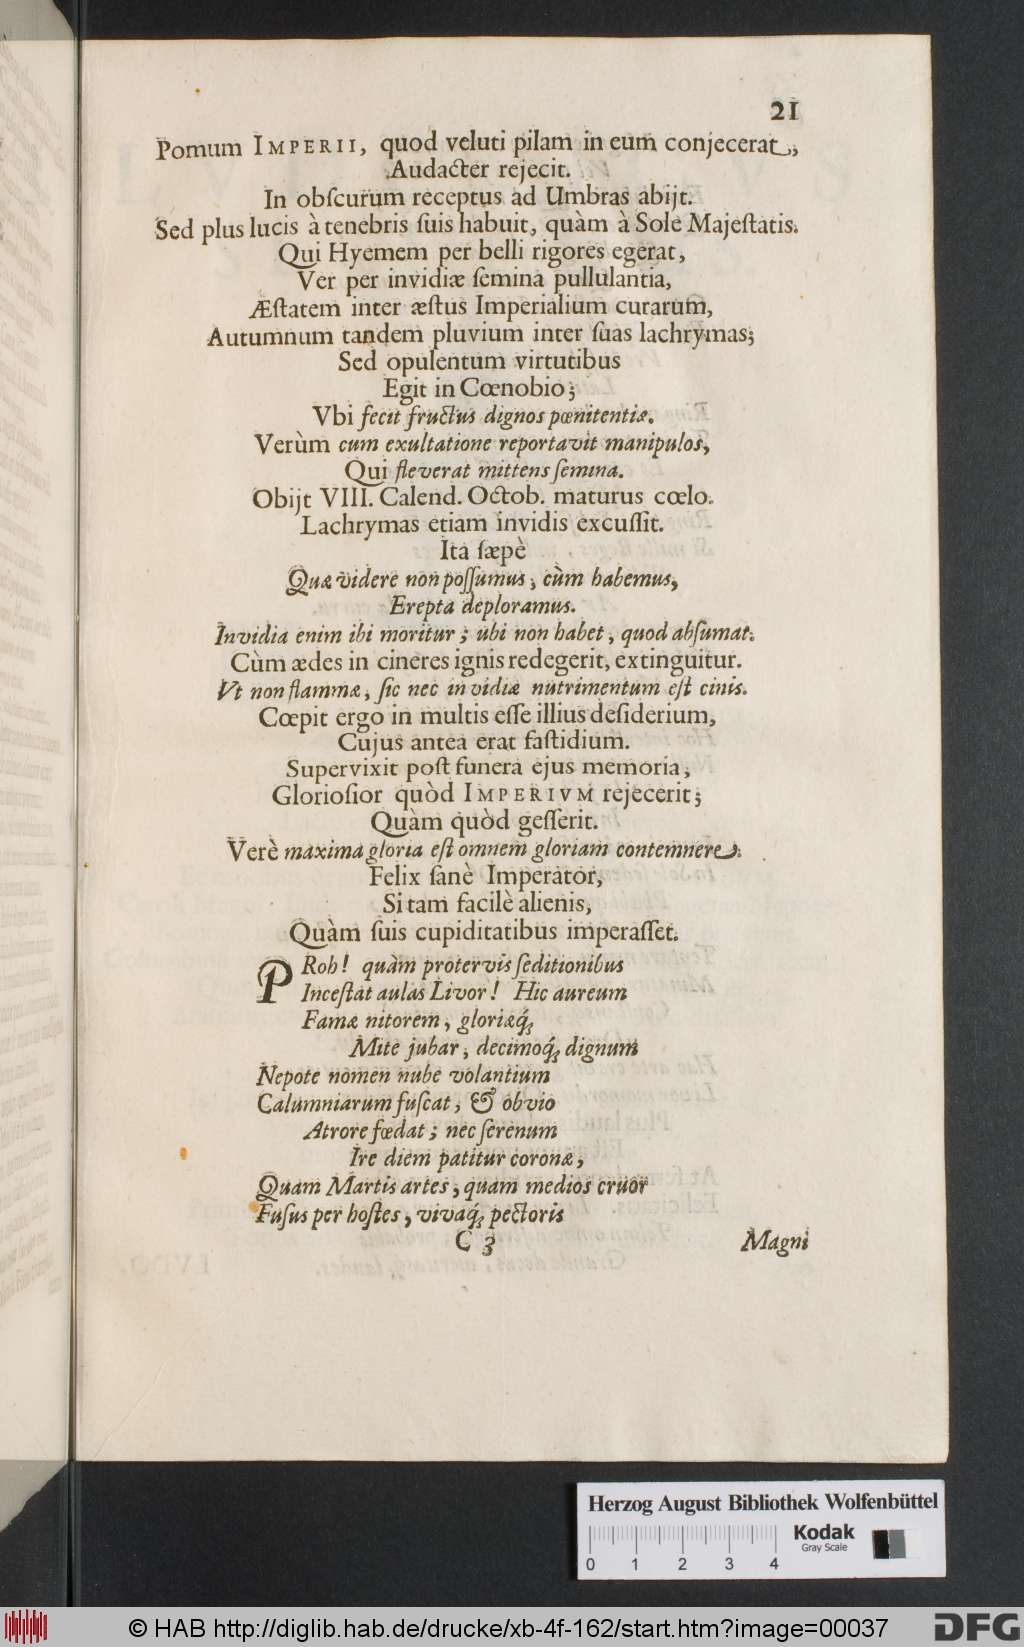 21
Pomum IMPERII, quod veluti pilam in eum conjecerat,
Audacter rejecit.
In obſcurum receptus ad Umbras abijt.
Sed plus lucis à tenebris ſuis habuit, quàm à Sole Majeſtatis.
Qui Hyemem per belli rigores egerat,
Ver per invidiæ ſemina pullulantia,
Æſtatem inter æſtus Imperialium curarum,
Autumnum tandem pluvium inter ſuas lachrymas;
Sed opulentum virtutibus
Egit in Cœnobio;
Vbi fecit fructus dignos pœnitentiæ.
Verùm cum exultatione reportavit manipulos,
Qui fleverat mittens ſemina.
Obijt VIII. Calend. Octob. maturus cœlo.
Lachrymas etiam invidis excuſſit.
Ita ſæpè
Quæ videre non poſſumus, cùm habemus,
Erepta deploramus.
Invidia enim ibi moritur; ubi non habet, quod abſumat.
Cùm ædes in cineres ignis redegerit, extinguitur.
Vt non flammæ, ſic nec invidiæ nutrimentum eſt cinis.
Cœpit ergo in multis eſſe illius deſiderium,
Cujus antea erat faſtidium.
Supervixit poſt funera ejus memoria,
Glorioſior quòd IMPERIVM rejecerit;
Quàm quòd geſſerit.
Verè maxima gloria eſt omnem gloriam contemnere.
Felix ſanè Imperator,
Si tam facilè alienis,
Quàm ſuis cupiditatibus imperaſſet.
PRoh! quàm protervis ſeditionibus
Inceſtat aulas Livor! Hic aureum
Famæ nitorem, gloriæq́;
Mite jubar, decimoq́; dignum
Nepote nomen nube volantium
Calumniarum fuſcat, & obvio
Atrore fœdat; nec ſerenum
Ire diem patitur coronæ,
Quam Martis artes, quam medios cruor
Fuſus per hoſtes, vivaq́; pectoris
C 3 Magni
Herzog August Bibliothek Wolfenbüttel
Kodak
Gray Scale
0 1 2 3 4
© HAB http://diglib.hab.de/drucke/xb-4f-162/start.htm?image=00037
DFG